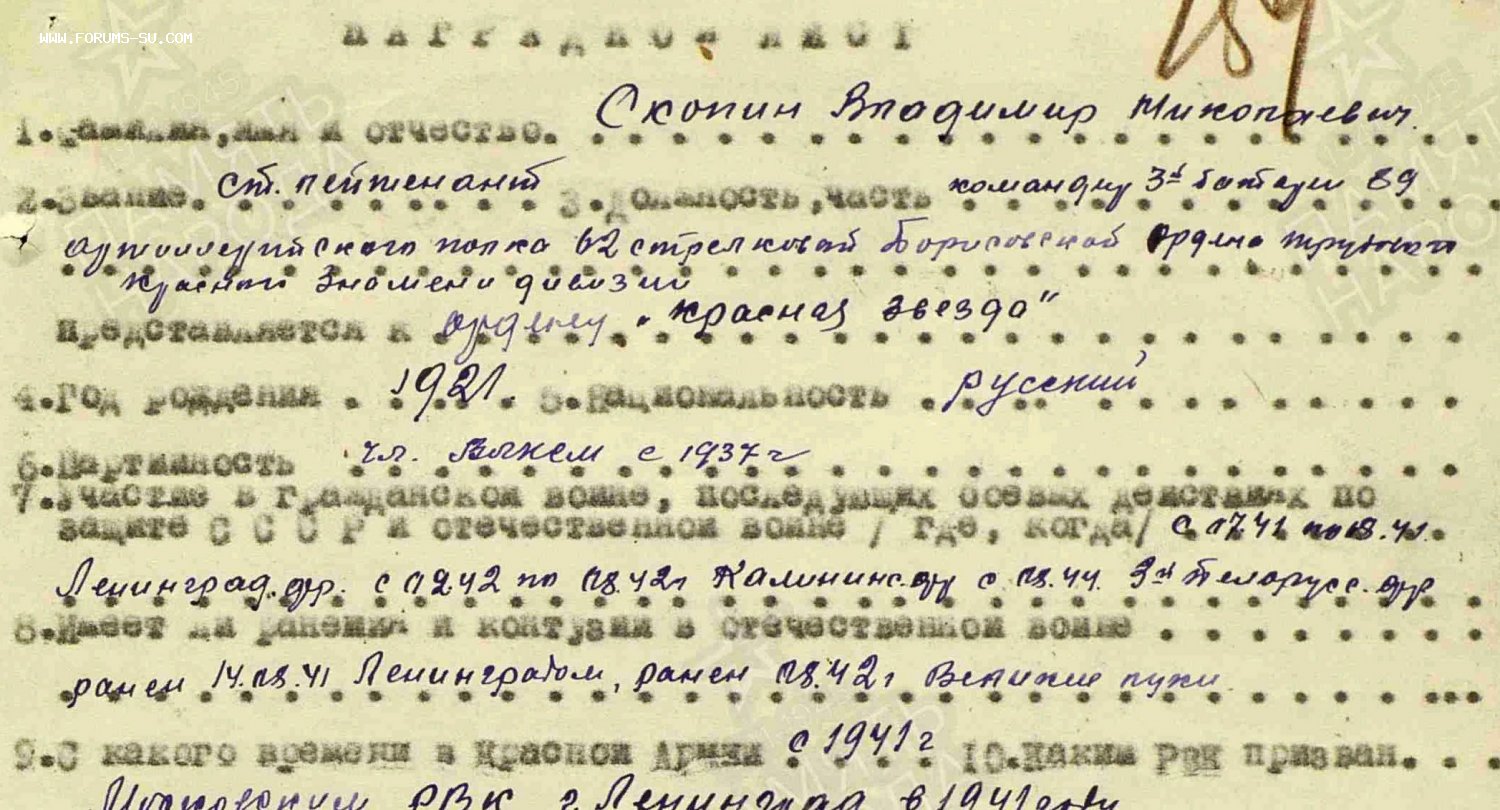 WWW.FORUMS-SU.COM
НАГРАДНОЙ ЛИСТ
1.Фамилия,имя и отчество. Скопин Владимир Николаевич.
2.Звание. Ст. лейтенант 3.Должность,часть командир 3й батареи 89
артиллерийского полка 62 стрелковой Борисовской Ордена трудового
Красного Знамени дивизии
представляется к ордену "Красная звезда"
4.Год рождения 1921. 5.Национальность русский
6.Партийность чл. ВЛКСМ с 1937 г
7.Участие в гражданской войне, последующих боевых действиях по
защите С С С Р и отечественной войне / где, когда/ с 07.41 по 08.41.
Ленинград.фр. с 02.42 по 08.42г Калининс.фр с 08.44. 3й Белорусс. фр
8.Имеет ли ранения и контузии в отечественной войне
ранен 14.08.41 Ленинградом, ранен 08.42г Великие луки
9.С какого времени в Красной Армии с 1941 г 10.Каким РВК призван.
Московским РВК г. Ленинграда в 1941 году